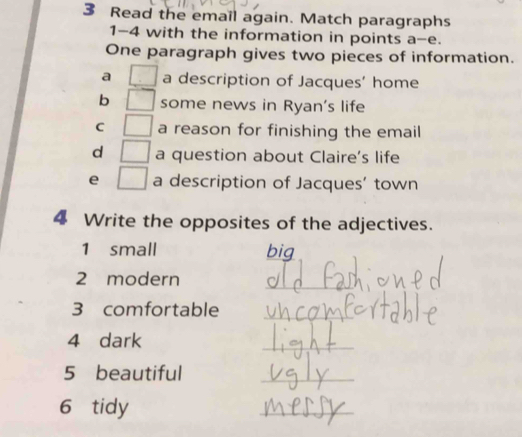 3 Read the email again. Match paragraphs
1–4 with the information in points a–e.
One paragraph gives two pieces of information.
a a description of Jacques' home
b some news in Ryan's life
c a reason for finishing the email
d a question about Claire's life
e a description of Jacques' town
4 Write the opposites of the adjectives.
1 small big
2 modern old fashioned
3 comfortable uncomfortable
4 dark light
5 beautiful ugly
6 tidy messy